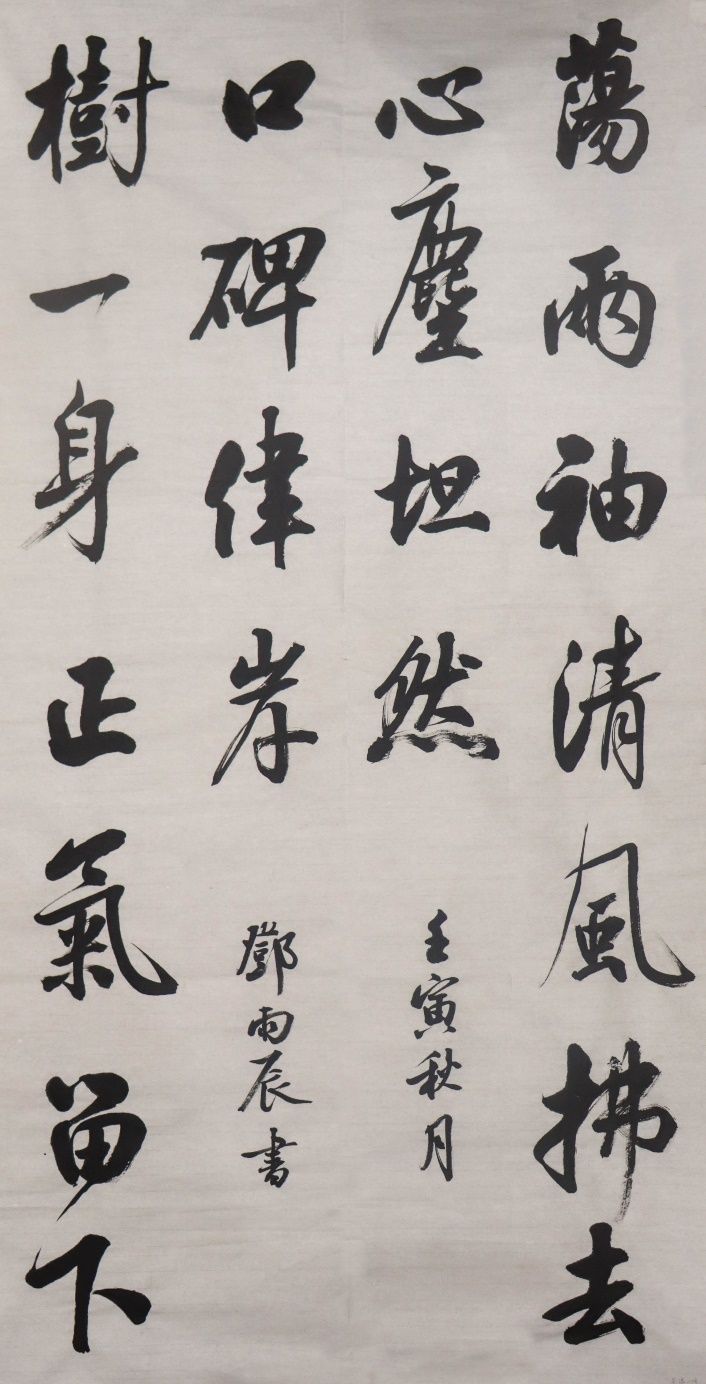 蕩兩袖清風拂去
心塵坦然
壬寅秋月
樹一身正氣留下
口碑偉岸
鄧雨辰書